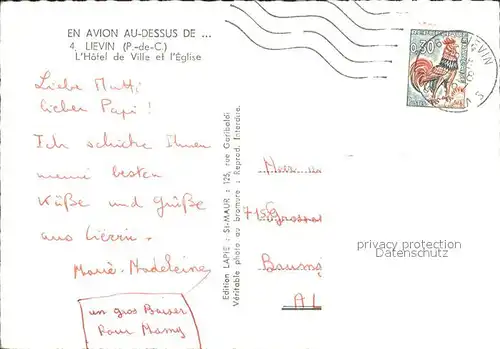 EN AVION AU-DESSUS DE ...
4. LIEVIN (P.-de-C.)
L'Hôtel de Ville et l'Église
Liebe Mutti
lieber Papi !
Ich schicke Ihnen
meine besten
Küße und Grüße
aus Liévin.
Marie-Madeleine
un gros Baiser
Pour Mamy
Edition LAPIE : St-MAUR : 125, rue Garibaldi
Véritable photo au bromure : Reprod. Interdite.
0,30
715
Al
privacy protection
Datenschutz